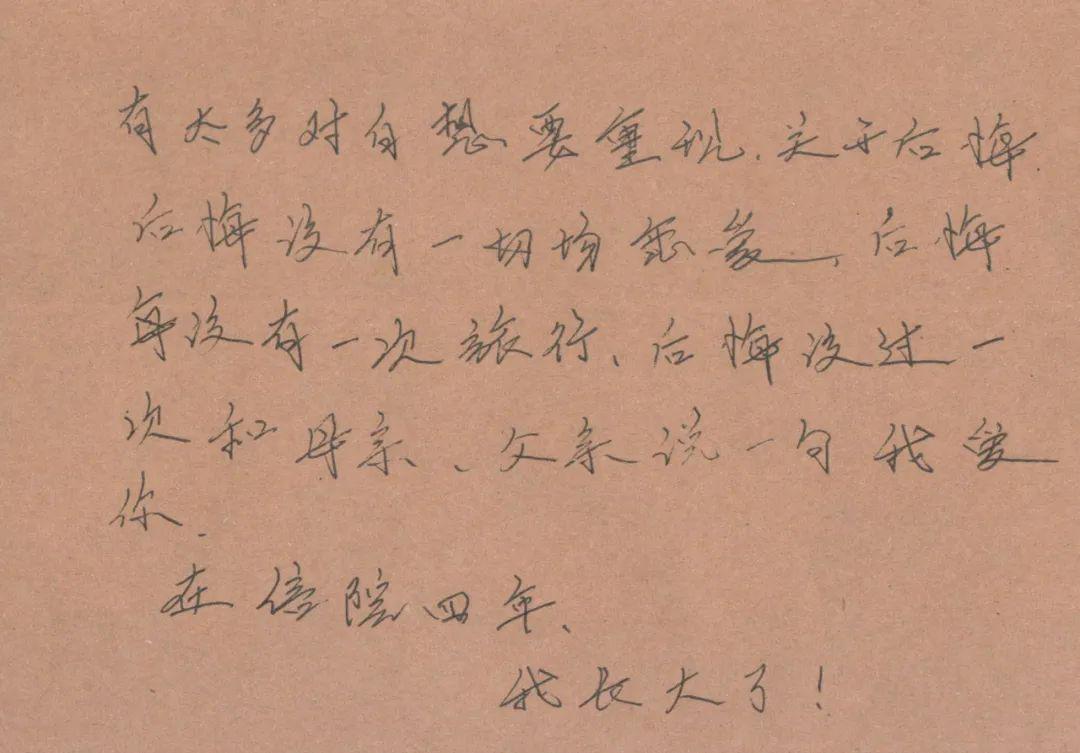 有太多对白想要重现、关于后悔.
后悔没有一切场恋爱、后悔
每没有一次旅行、后悔没过一
次和母亲、父亲说一句我爱
你.
在信院四年、
我长大了！